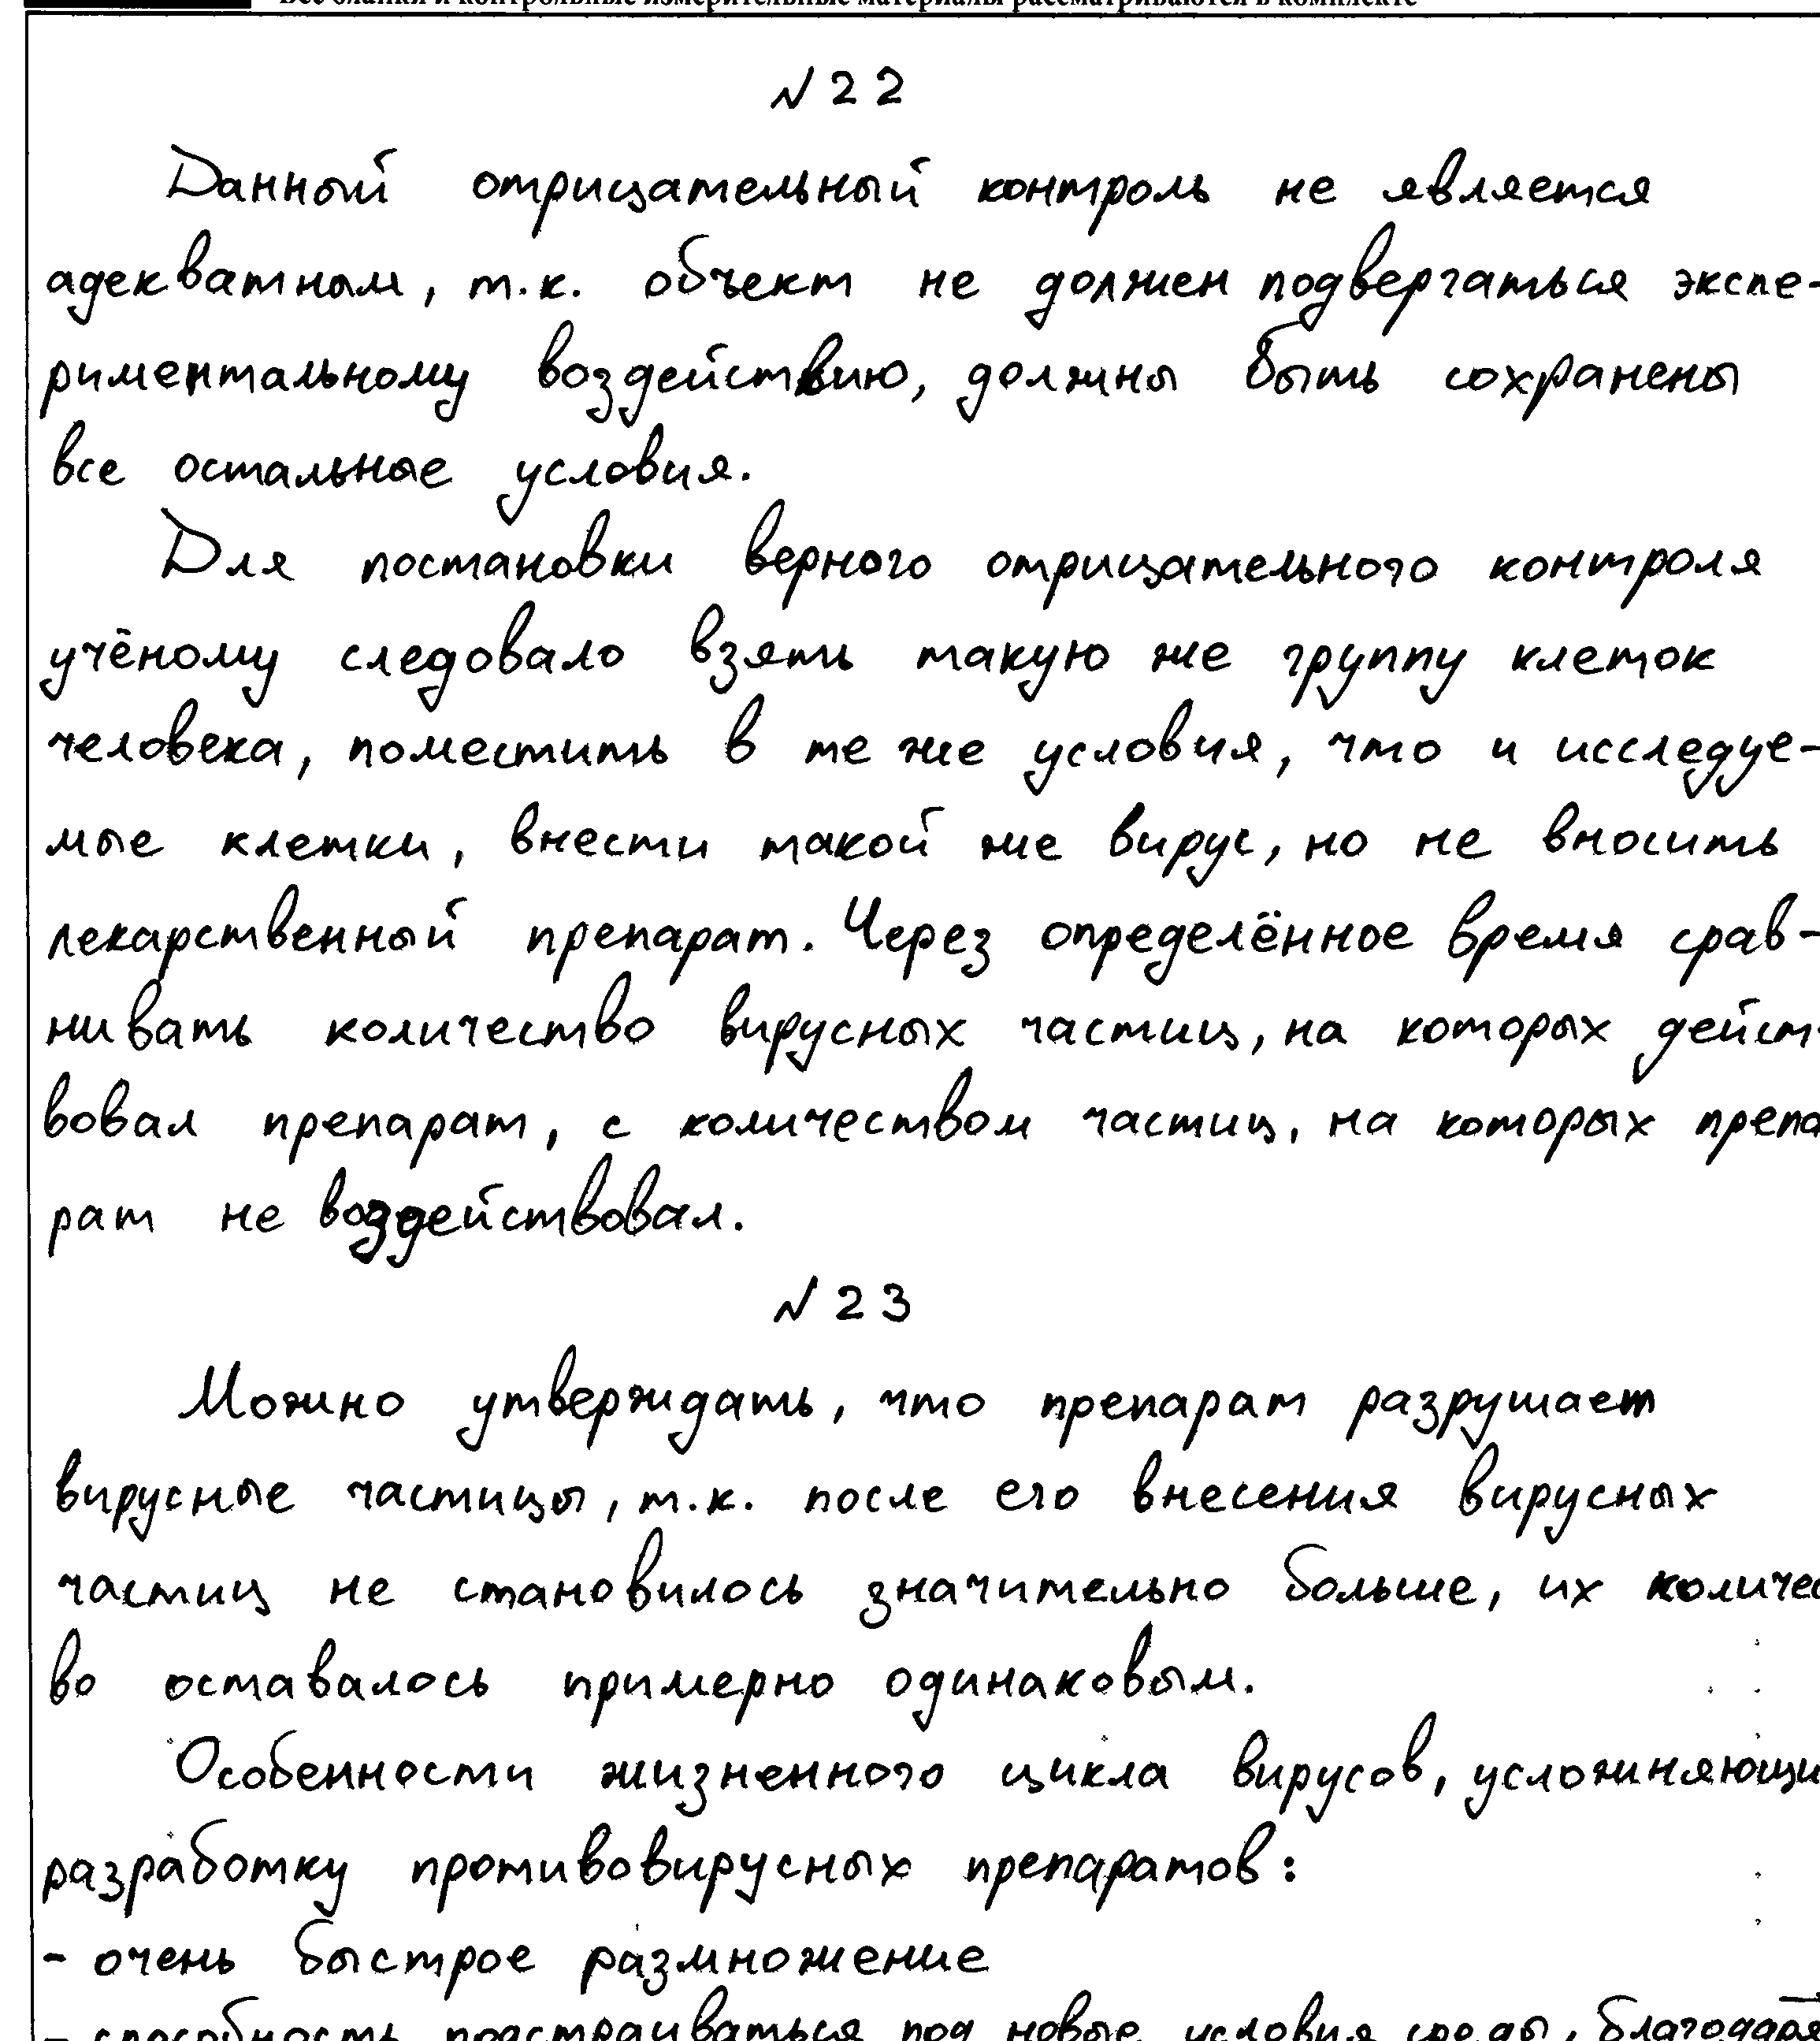 Все бланки и контрольные измерительные материалы рассматриваются в комплекте
№ 22
Данный отрицательный контроль не является
адекватным, т.к. объект не должен подвергаться экспе-
риментальному воздействию, должны быть сохранены
все остальные условия.
Для постановки верного отрицательного контроля
учёному следовало взять такую же группу клеток
человека, поместить в те же условия, что и исследуе-
мые клетки, внести такой же вирус, но не вносить
лекарственный препарат. Через определённое время срав-
нивать количество вирусных частиц, на которых дейст-
вовал препарат, с количеством частиц, на которых препа
рат не воздействовал.
№ 23
Можно утверждать, что препарат разрушает
вирусные частицы, т.к. после его внесения вирусных
частиц не становилось значительно больше, их количес
во оставалось примерно одинаковым.
Особенности жизненного цикла вирусов, усложняющи
разработку противовирусных препаратов:
- очень быстрое размножение
- способность подстраиваться под новые условия среды, благодаря